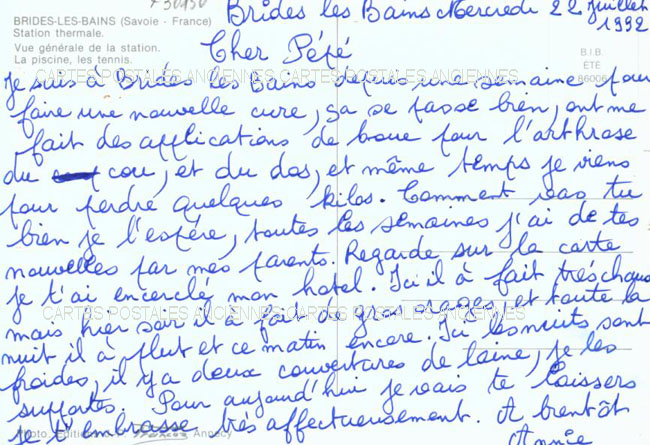 + 50950
BRIDES-LES-BAINS (Savoie - France)
Station thermale.
Vue générale de la station.
La piscine, les tennis.
B.I.B.
ÉTÉ
86006
Brides les Bains Mercredi 22 juillet
1992
Cher Pépé
je suis à Brides les Bains depuis une semaine pour
CARTES POSTALES ANCIENNES CARTES POSTALES ANCIENNES
faire une nouvelle cure, ça se passe bien, ont me
fait des applications de boue pour l'arthrose
du cou, et du dos, et même temps je viens
pour perdre quelques kilos. Comment vas tu
bien je l'espére, toutes les semaines j'ai de tes
nouvelles par mes parents. Regarde sur la carte
je t'ai encerclé mon hotel. Ici il à fait trés chaud
mais hier soir il à fait de gros orages, et toute la
CARTES POSTALES ANCIENNES CARTES POSTALES ANCIENNES
nuit il à plut et ce matin encore. Ici les nuits sont
froides, il y a deux couvertures de laine, je les
supportes. Pour aujourd'hui je vais te laissers
je t'embrasse trés affectueusement. A bientôt
Photo. Editions Annecy
Annie